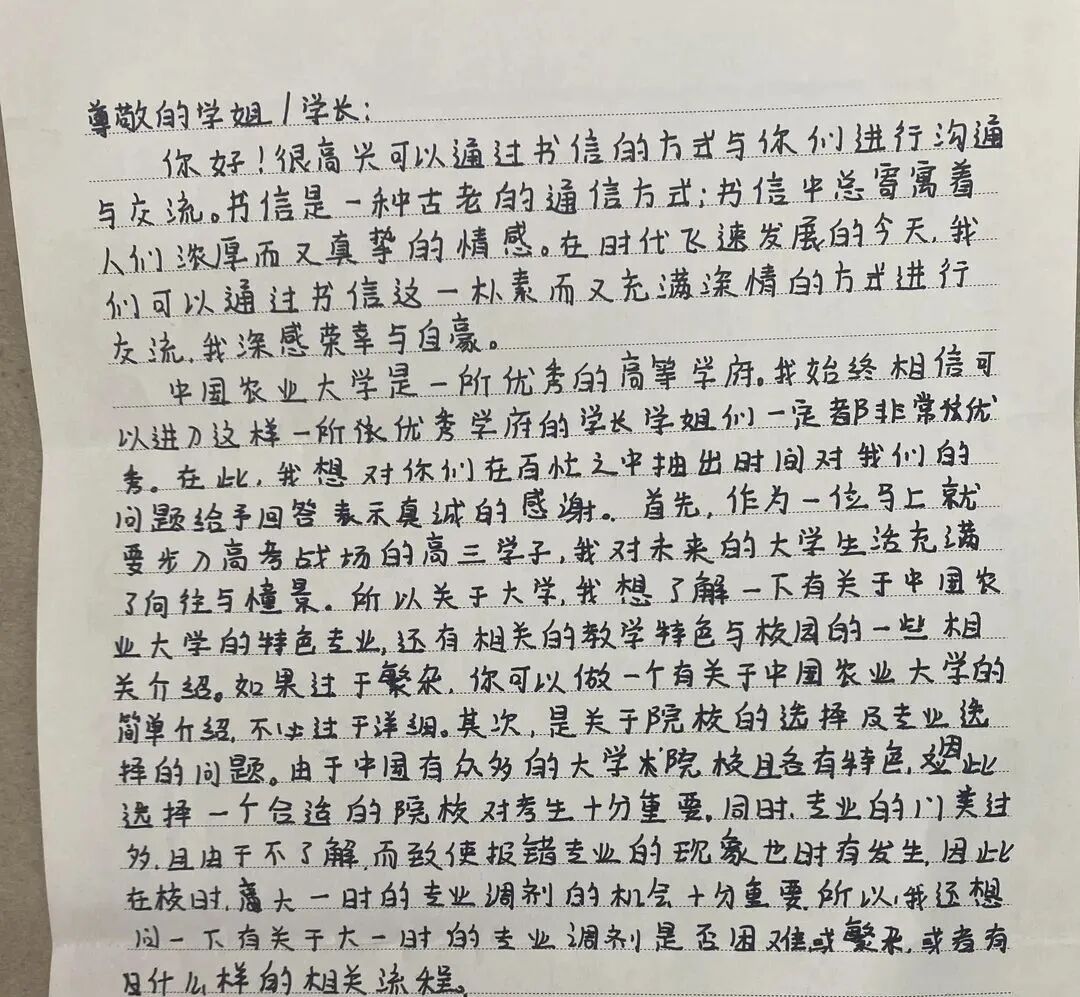 尊敬的学姐/学长:
你好!很高兴可以通过书信的方式与你们进行沟通
与交流。书信是一种古老的通信方式;书信中总寄寓着
人们浓厚而又真挚的情感。在时代飞速发展的今天,我
们可以通过书信这一朴素而又充满深情的方式进行
交流,我深感荣幸与自豪。
中国农业大学是一所优秀的高等学府。我始终相信可
以进入这样一所优秀学府的学长学姐们一定都非常优
秀。在此,我想对你们在百忙之中抽出时间对我们的
问题给予回答表示真诚的感谢。首先,作为一位马上就
要步入高考战场的高三学子,我对未来的大学生活充满
了向往与憧景。所以关于大学,我想了解一下有关于中国农
业大学的特色专业,还有相关的教学特色与校园的一些相
关介绍。如果过于繁杂,你可以做一个有关于中国农业大学的
简单介绍,不必过于详细。其次,是关于院校的选择及专业选
择的问题。由于中国有众多的大学院校且各有特色,因此
选择一个合适的院校对考生十分重要。同时,专业的门类过
多,且由于不了解,而致使报错专业的现象也时有发生,因此
在校时,大一时的专业调剂的机会十分重要,所以,我还想
问一下有关于大一时的专业调剂是否困难或繁杂,或者有
什么样的相关流程。